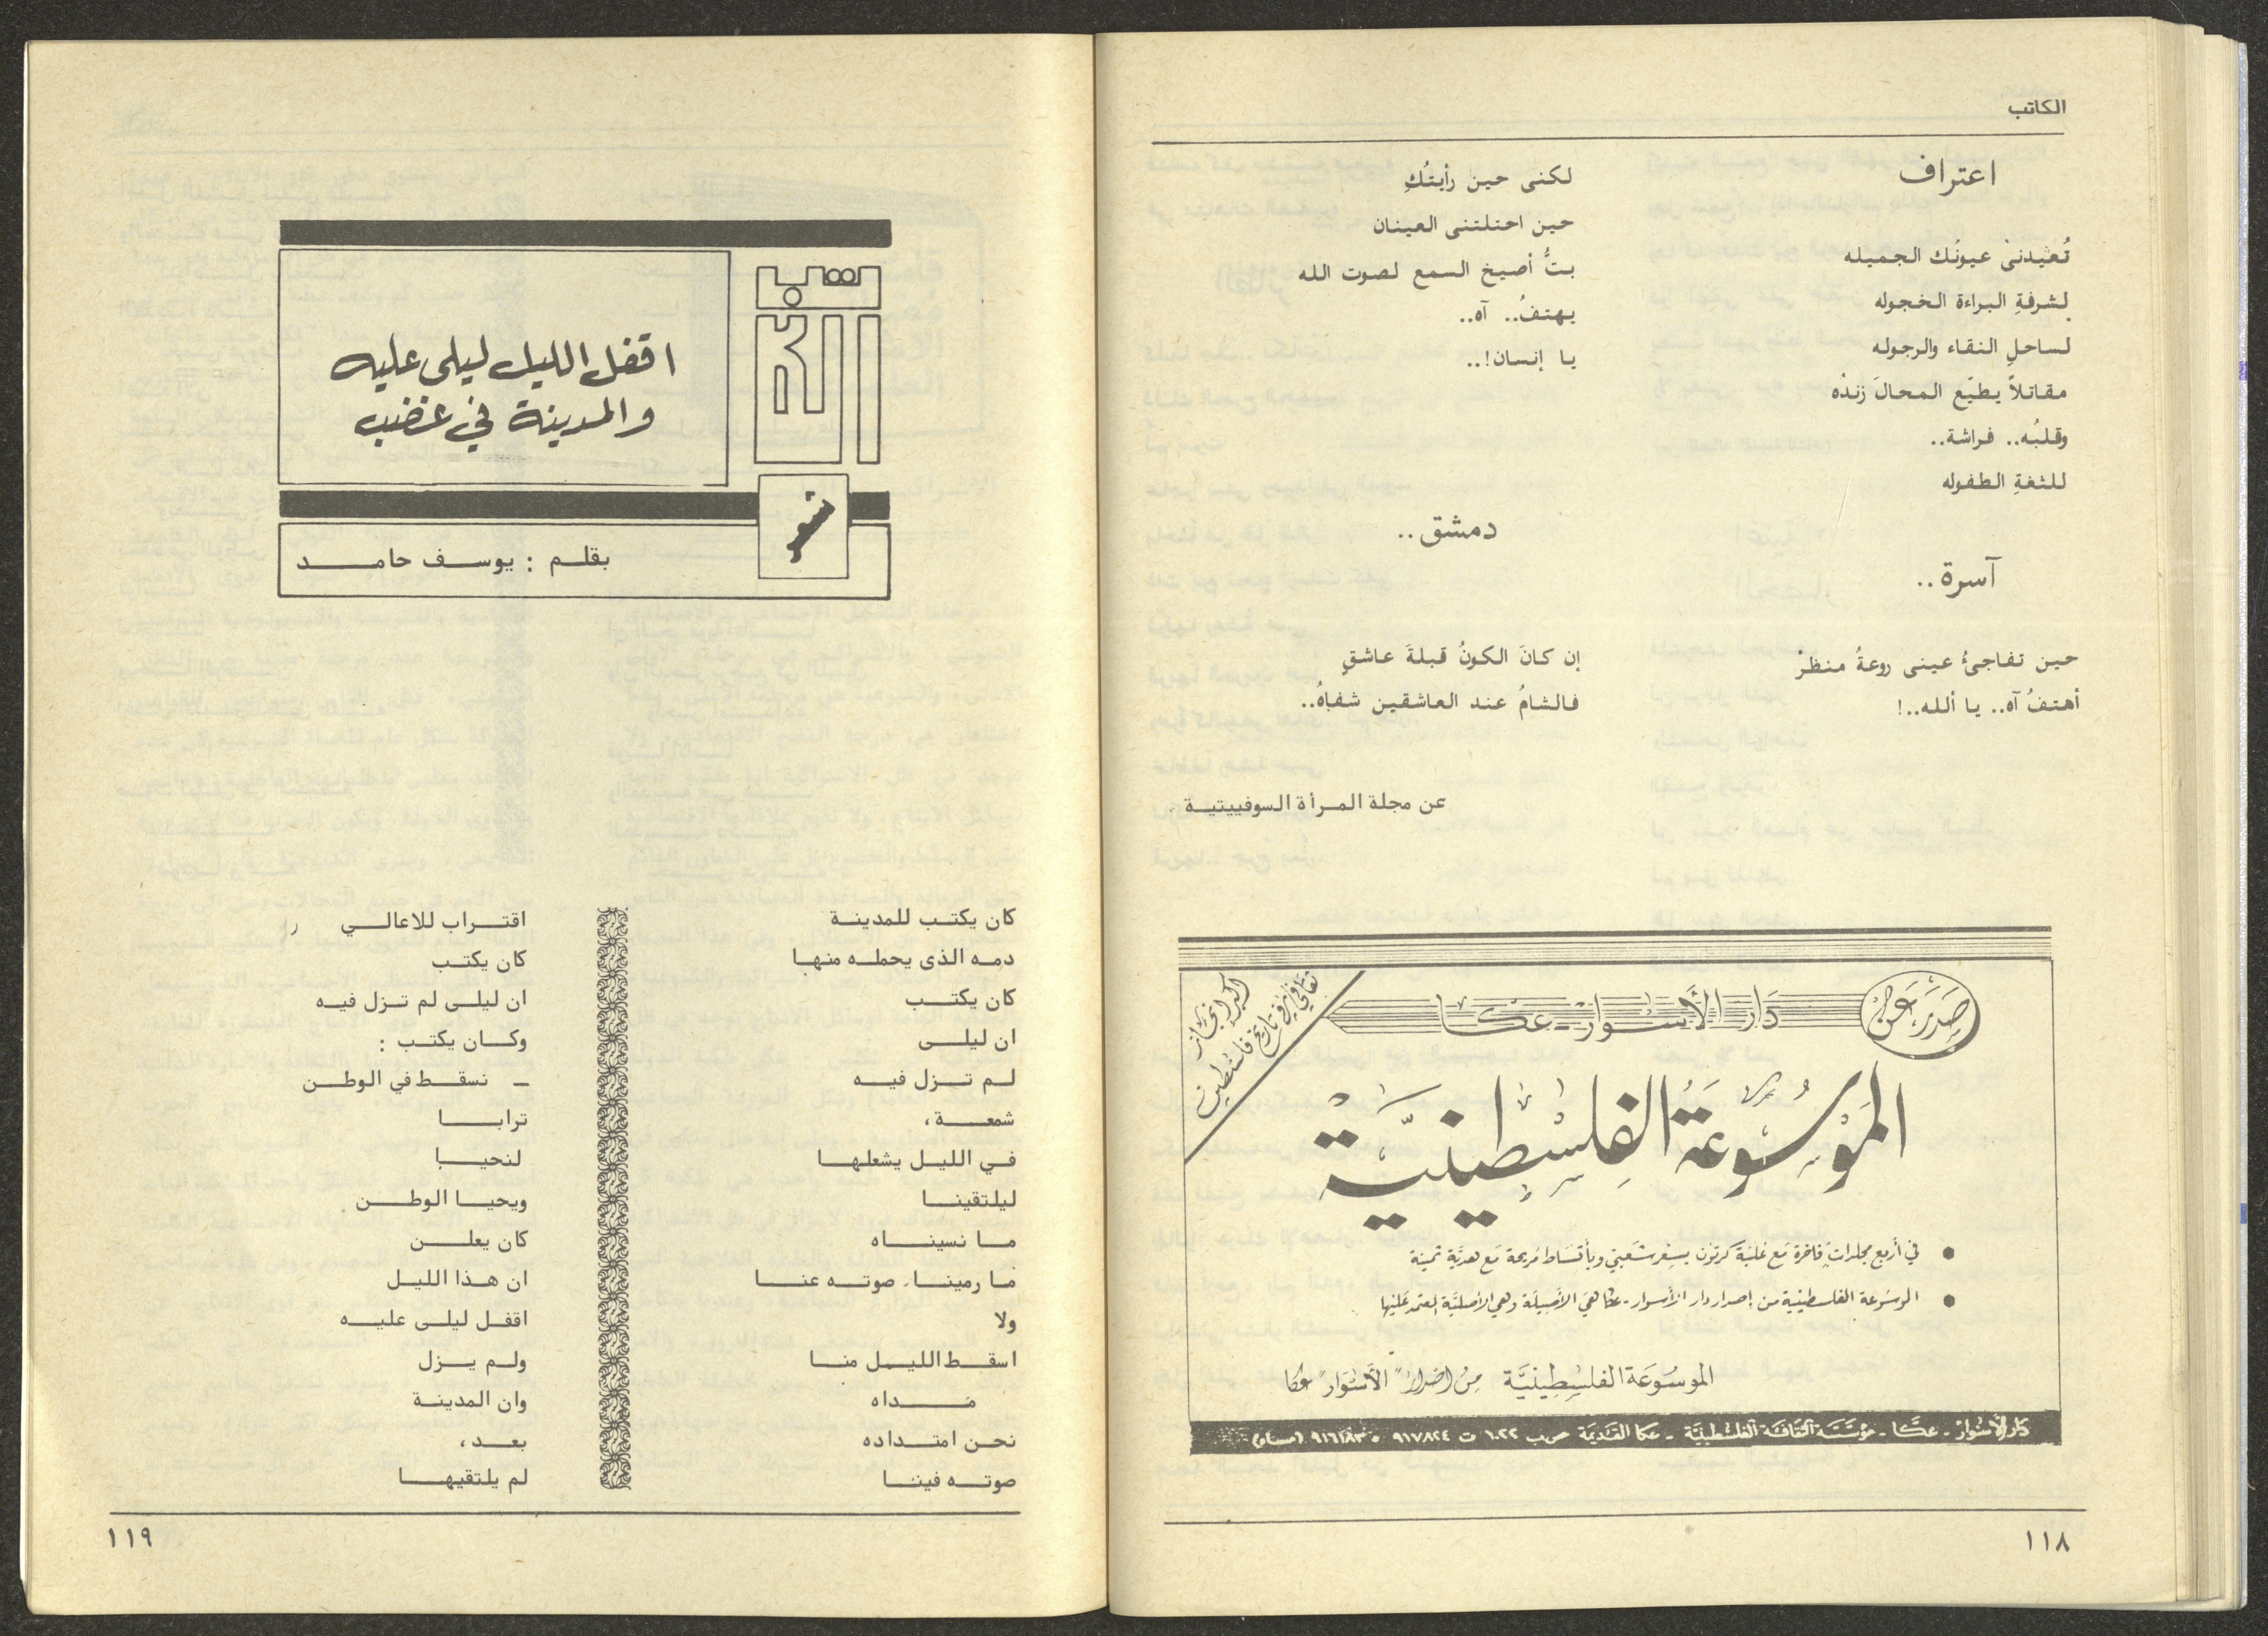 الكاتب
اعتراف
تُعيْدنيْ عيونُك الجميله
لشرفةِ البراءة الخجوله
لساحلِ النقاء والرجوله
مقاتلاً يطيّع المحالَ زندْه
وقلبُه.. فراشة..
للثغةِ الطفوله
آسرة..
حين تفاجئُ عينى روعةُ منظرْ
أهتفُ آه.. يا ألله..!
لكنى حين رأيتُكِ
حين احتلتنى العينان
بتُّ أصيخ السمع لصوت الله
يهتفُ.. آه..
يا إنسان!..
دمشق..
إن كانَ الكونُ قبلةَ عاشقٍ
فالشامُ عند العاشقين شفاهُ..
عن مجلة المرأة السوفييتية .
صَدَرَ عَن
دَار الأسْوار - عكا
اكبر انجاز
ثقافي في تاريخ فلسطين
الموْسُوعَة الفِلسْطِينيَّة
● في أربع مجلدات فاخرة مَع عُلبَة كرتون بسِعر شعبي وبأقسَاط مُريحة مَع هديَّة ثمينة
● الموسُوعة الفلسطينية من إصدار دار الأسوار - عكا هيَ الأصيلة وهي الأصليَّة المعتمد عَليها
الموسُوعَة الفلسْطِينيَّة مِن اصْدار "الأسْوَار" عكا
دار الأسْوار - عكَّا - مؤسَّسَة الثقافَة الفلسْطينيَّة - عكا القَديمَة ص.ب ٦٠٢٢ ت ٩١٧٨٢٤ - ٩١٦١٨٣ (مساء)
١١٨
اقفل الليل ليلى عليه
والمدينة في غضب
شعر
بقلم : يوسف حامد
كان يكتب للمدينة
دمه الذى يحمله منها
كان يكتب
ان ليلى
لم تزل فيه
شمعة ،
في الليل يشعلها
ليلتقينا
ما نسيناه
ما رمينا صوته عنا
ولا
اسقط الليل منا
مداه
نحن امتداده
صوته فينا
اقتراب للاعالي
كان يكتب
ان ليلى لم تزل فيه
وكان يكتب :
ـ نسقط في الوطن
ترابا
لنحيا
ويحيا الوطن .
كان يعلن
ان هذا الليل
اقفل ليلى عليه
ولم يزل
وان المدينة
بعد ،
لم يلتقيها
١١٩